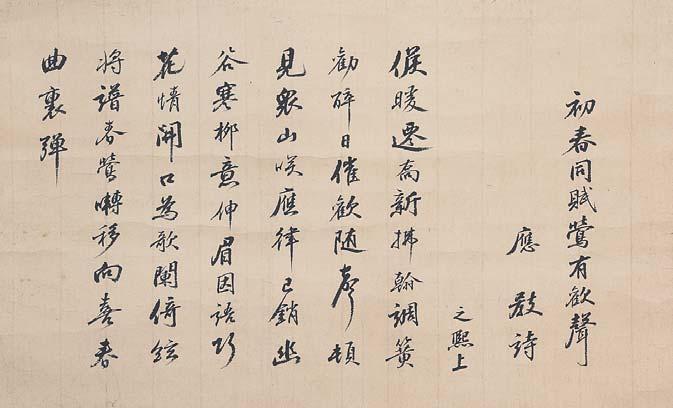 初春同賦鶯有歓聲
應教詩
之熈上
候暖遷高新拂翰調簧
勸醉日催歓随聲頓
見衆山咲應律已銷幽
谷寒柳意伸眉因語巧
花情開口為歌闌倚絃
将譜春鶯囀移向喜春
曲裏弾